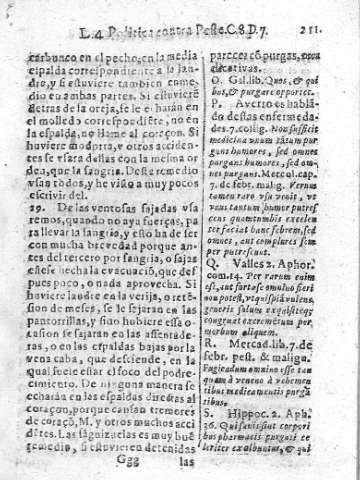 L. 4. Politica contra Peste. C. 8. D. 7. 211.
carbunco en el pecho, en la media
espalda correspondiente a la lan
dre, y si estuviere tambien eme
dio en ambas partes. Si estuviere
detras de la oreja, se le echarán en
el molledo correspondiẽte, no en
la espalda, no llame al coraçon. Si
huviere modorra, v otros acciden-
tes se vsara destas con la mesma or
dea, que la sangria. Deste remedio
vsan todos, y he visto a muy pocos
escrivir del.
29. De las ventosas sajadas vsa
remos, quando no aya fuerças, pa
ra llevar la sangria, y esto ha de ser
con mucha brevedad porque an-
tes del tercero por sangria, o sajas
estese hecha la evacuaciõ, que des
pues poco, o nada aprovecha. Si
huviere landre en la verija, o reten-
sion de meses, se le sejaran en las
pantorrillas, y sino hubiere essa o-
casion se sajaran en las assentade-
ras, o en las espaldas bajas por la
vena caba, que desciende, en la
qual suele estar el foco del podre-
cimiento. De ninguna manera se
echarán en las espaldas directas al
coraçon, porque causan tremores
de coraçõ, M. y otros muchos acci
dẽtes. Las saguizuelas es muy buẽ
remedio, si estuvieren detenidas
Ggg las
parecer cõ purgas,
lectivas.
O. Gal. lib. Quos, & qui
bus, & purgari oportet.
P. Averro es hablã
do destas enfermeda-
des 7. collig. Non sufficit
medicina unum tantum pur
gans humores, sed omnes
purgans humores, sed om-
nes purgans. Mercol. cap.
7. de febr. malig. Verus
tamen raro usu venit, ut
unus tantum humor putres
cens quantumbis excelen
ter faciat hanc febrem, sed
omnes, aut complures sem
per putrescunt.
Q. Valles 2. Aphor.
com. 14. Per rarum enim
est, aut fortase omnino fieri
non potest, ut quispia valens,
generis solum exquisitecg;
congruat excremetum per
morbum aliquem.
R. Mercad. lib. 7. de
febr. pest. & malign.
Fugiendum omnino esse tan
quam à veneno à vehemen
tibus medicamentis purga
tibus.
S. Hippoc. 2. Aph.
36. Qui sanis sunt corpori
bus pharmacis purgati ce
leriter exolbuntur, & qui